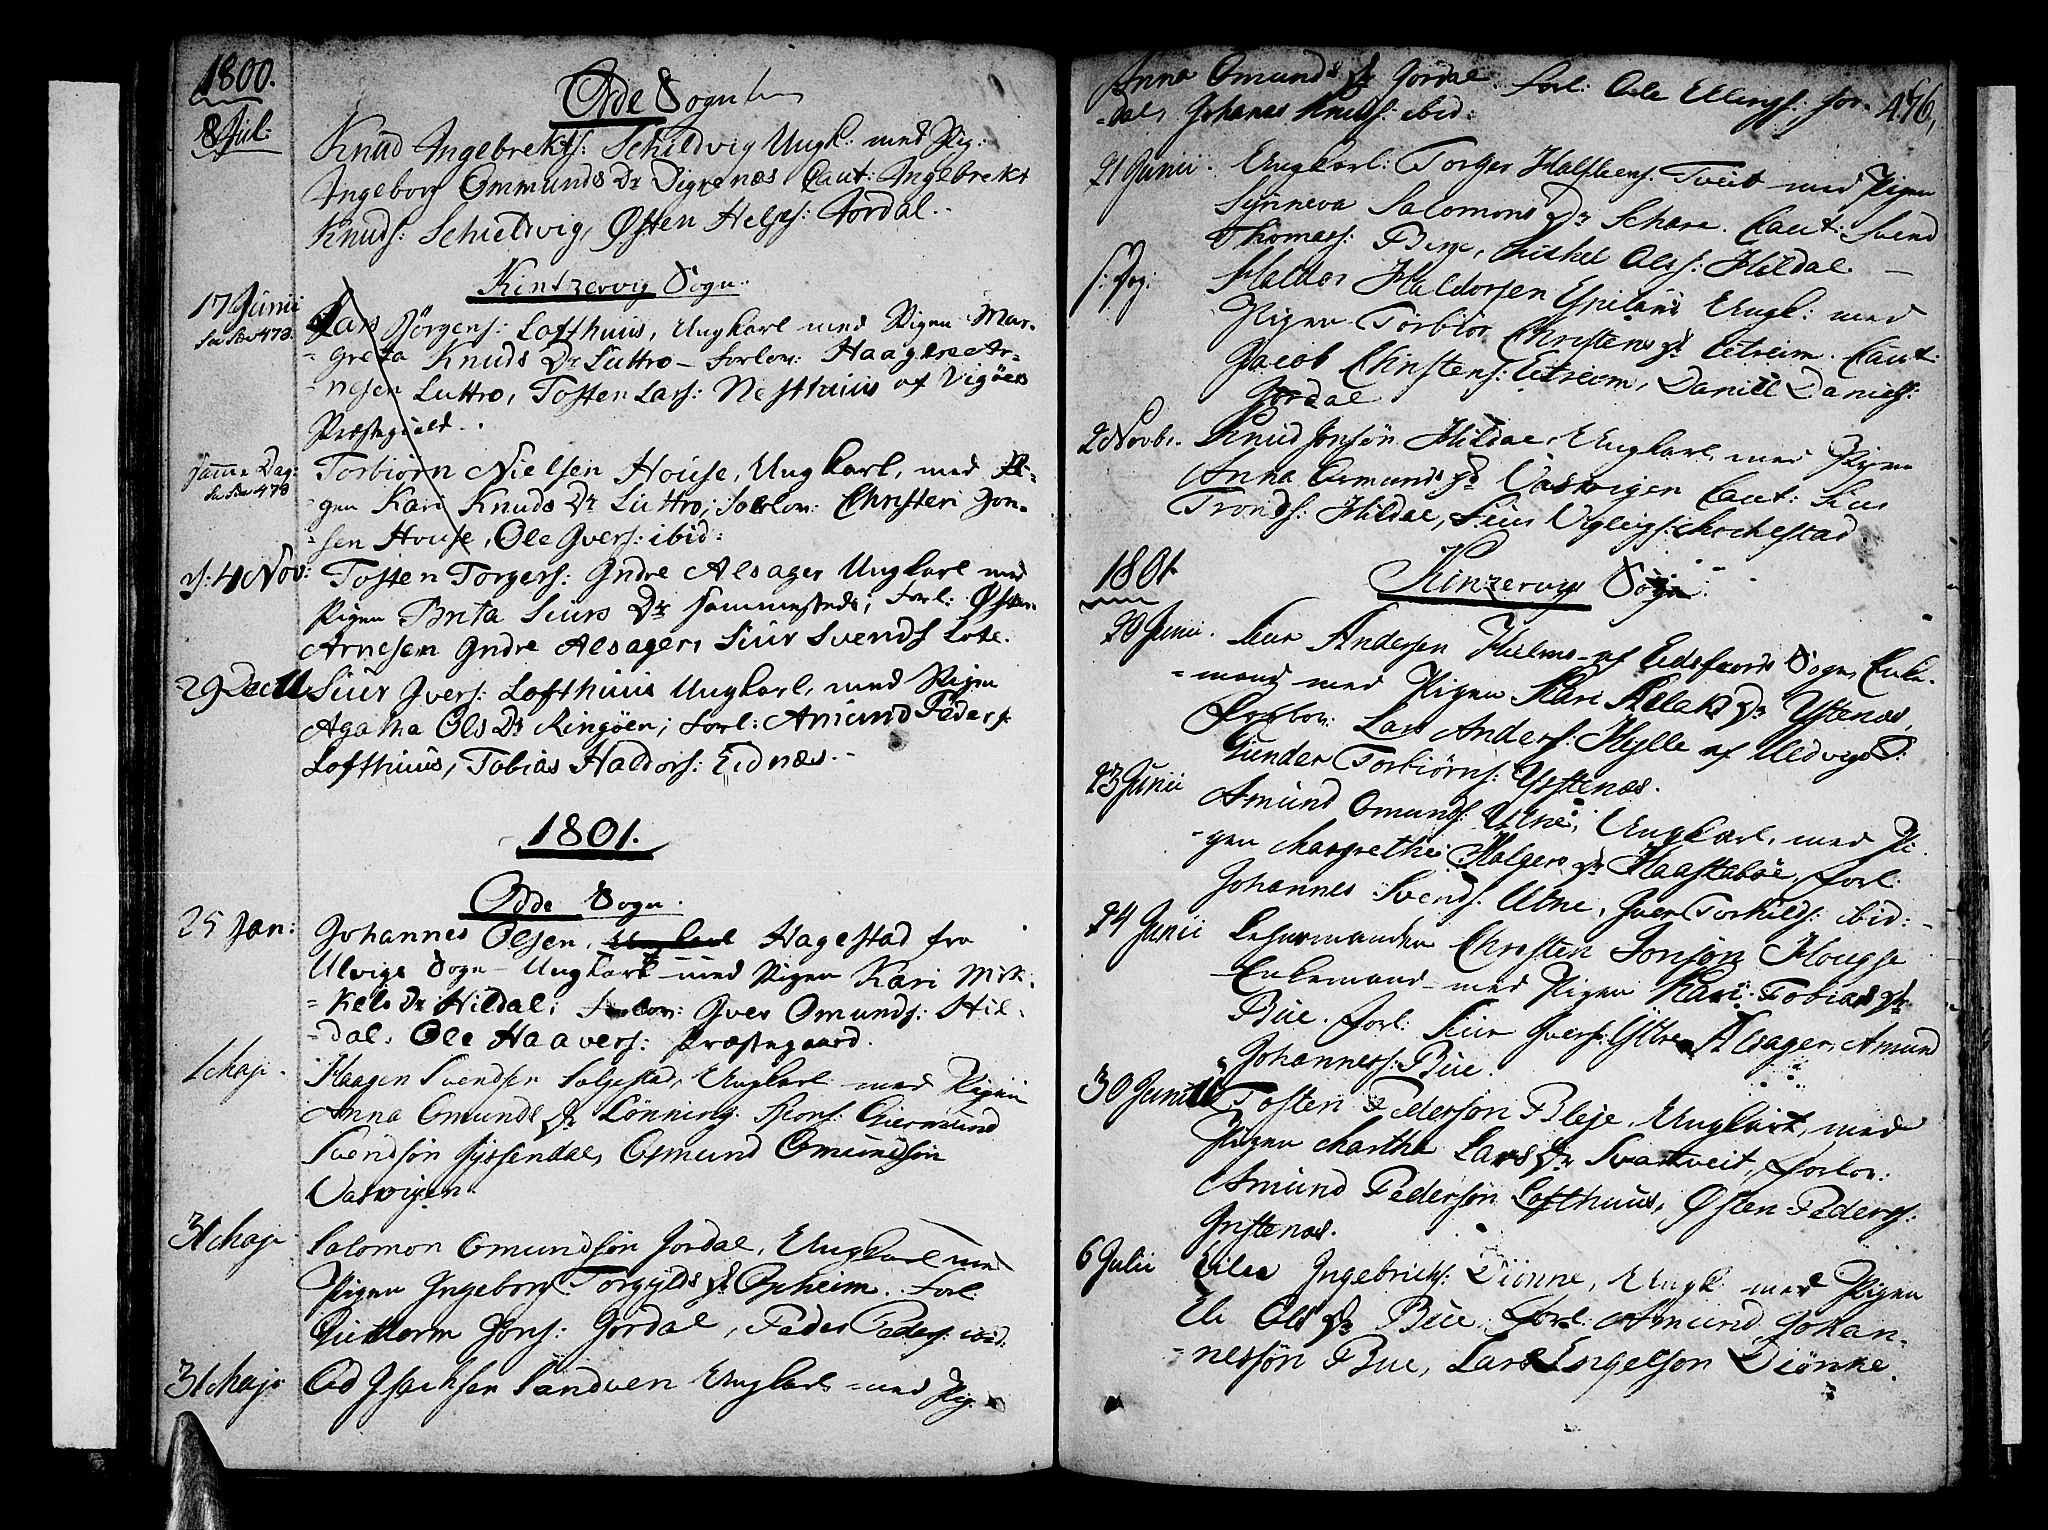 1800.
Odde Sogn
8 Jul:
Knud Ingebrekts: Schieldvig Ungk: med Pig:
Ingeborg Ommunds Dr Digrenæs Caut: Ingebrekt
Knuds: Schieldvig, Østen Helges: Jordal.
Kintzervig Sogn.
17 Junii
Lars Jörgens: Lofthuus, Ungkarl med Pigen Mar-
greta Knuds Dr Luttro- Forlov: Haagen Ar-
nesen Luttro, Tosten Lars: Nesthuus af Vigöer
Præstegield.
samme Dag:
Torbiörn Nielsen House, Ungkarl, med Pi-
gen Kari Knuds Dr Luttro; Forlov: Christen Jon-
sen House, Ole Ivers: ibid:
d: 4 Nov:
Tosten Torgers: Indre Alsager Ungkarl med
Pigen Brita Siurs Dr sammesteds, Forl: Østen
Arnesen Indre Alsager, Siur Svends Lote.
29 Dec
Siur Ivers: Lofthuus Ungkarl, med Pigen
Agatha Ols Dr Ringöen; Forl: Amund Peders:
Lofthuus, Tobias Haldors: Eidnæs.
1801.
Odde Sogn.
25 Jan:
Johannes Olsen, Hagestad fra
Ulvigs Sogn - Ungkarl med Pigen Kari Mik-
kels Dr Hildal; Forlov: Iver Omunds: Hil-
dal, Ole Haavers: Præstegaard.
1 Maji.
Haagen Svendsen Solgestad, Ungkarl med Pigen
Anna Omunds Dr Lönning. Spons: Giermund
Svendsön Tyssendal, Osmund Omundsön
Vasvigen.
31 Maji
Salomon Omundsön Jordal, Ungkarl med
Pigen Ingeborg Torgylds Dr Opheim. Forl:
Guttorm Jons: Jordal, Peder Peders: ibid:
31 Maji
Od Isachsen Sandven Ungkarl med Pig.
476,
Anna Omunds Dr Jordal. Forl: Ole Ellings: Jor-
dal, Johanes Knuds: ibid:
21 Junii.
Ungkarl: Torger Halstens: Tveit med Pigen
Sünneva Salomons Dr Schare. Caut: Svend
Thomass: Berge, Michel Ols: Hildal.
s: Dag:
Haldor Haldorsen Espeland Ungk: med
Pigen Torbior Christens Dr Eitreim. Caut:
Jacob Christens: Eitreim, Daniel Daniels:
Jordal
2 Novb.
Knud Jonsön Hildal, Ungkarl med Pigen
Anna Osmunds Dr Vasvigen Caut: Siur
Tronds: Hildal, Siur Vigleigs: Mochestad
1801
Kinzervigs Sogn.
20 Junii.
Siur Andersen Hielmo af Eidsfiords Sogn, Enke-
mand med Pigen Kari Aslaks Dr Ystenæs,
Forlov: Lars Anders: Hylle af Ulvigs S:
Gunder Torbiörns: Ystenæs.
23 Junii
Amund Omunds: Utne, Ungkarl, med Pi-
gen Margrethe Holgers Dr Haastaböe, Forl:
Johannes Svends: Utne, Iver Torkilds: ibid:
24 Junii
Lehnsmanden Christen Jonsön Hougse
Enkemand med Pigen Kari Tobias Dr
Büe. Forl: Siur Ivers: Ytre Alsager, Amund
Johanness: Büe.
30 Junii
Tosten Pedersön Bleje, Ungkarl, med
Pigen Martha Lars Dr Svartveit, Forlov:
Amund Pedersön Lofthuus, Østen Peders:
Instenæs.
6 Julii
Eilev Ingebricks: Diönne, Ungk: med Pigen
Eli Ols Dr Büe. Forl: Amund Johan-
nessön Bue, Lars Engelson Diönne.